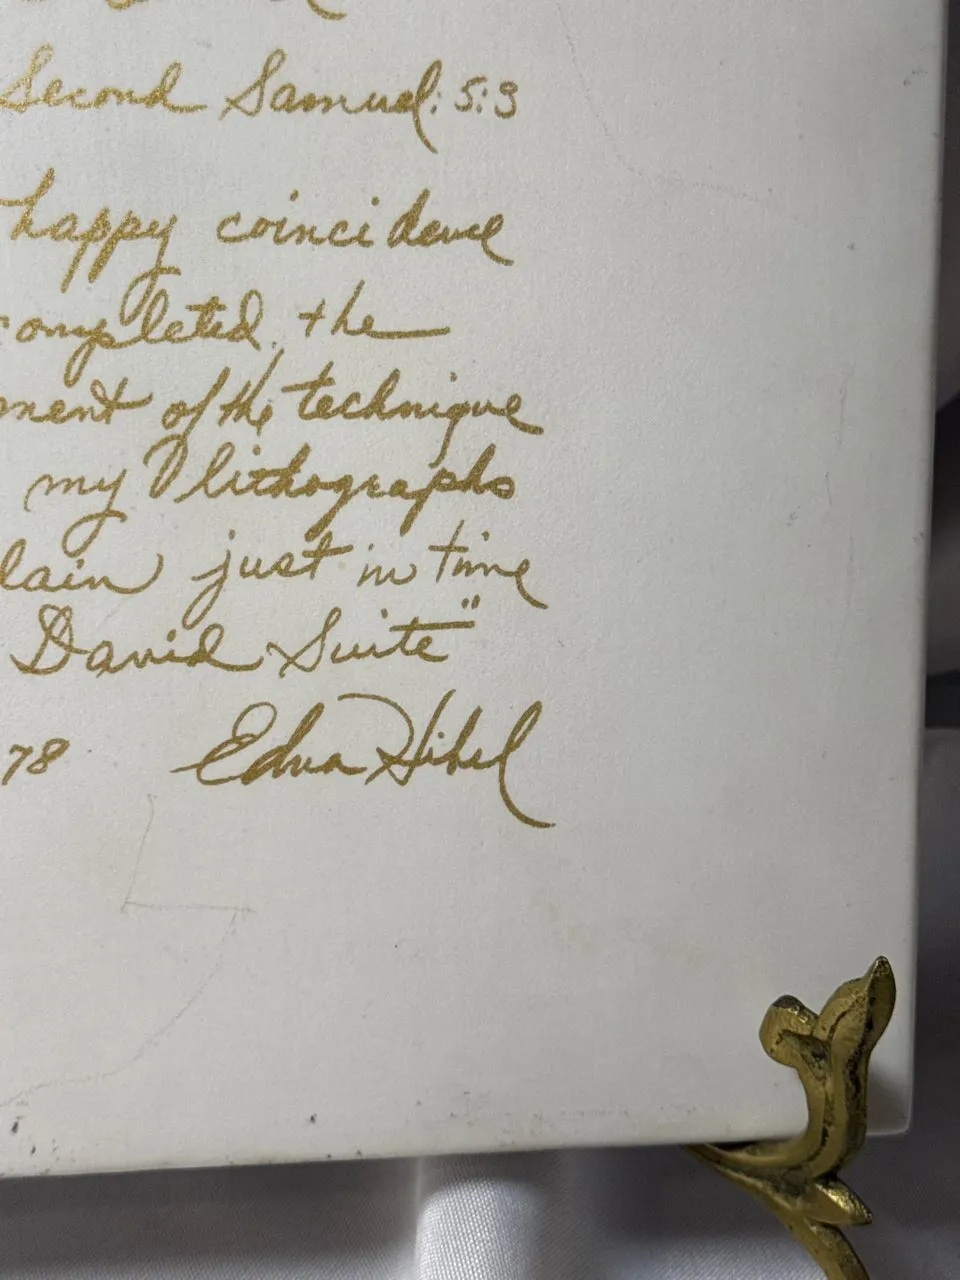 Second Samuel: 5:3
happy coincidence
completed the
ment of the technique
my lithographs
lain just in time
David Suite"
78 Edna Hibel